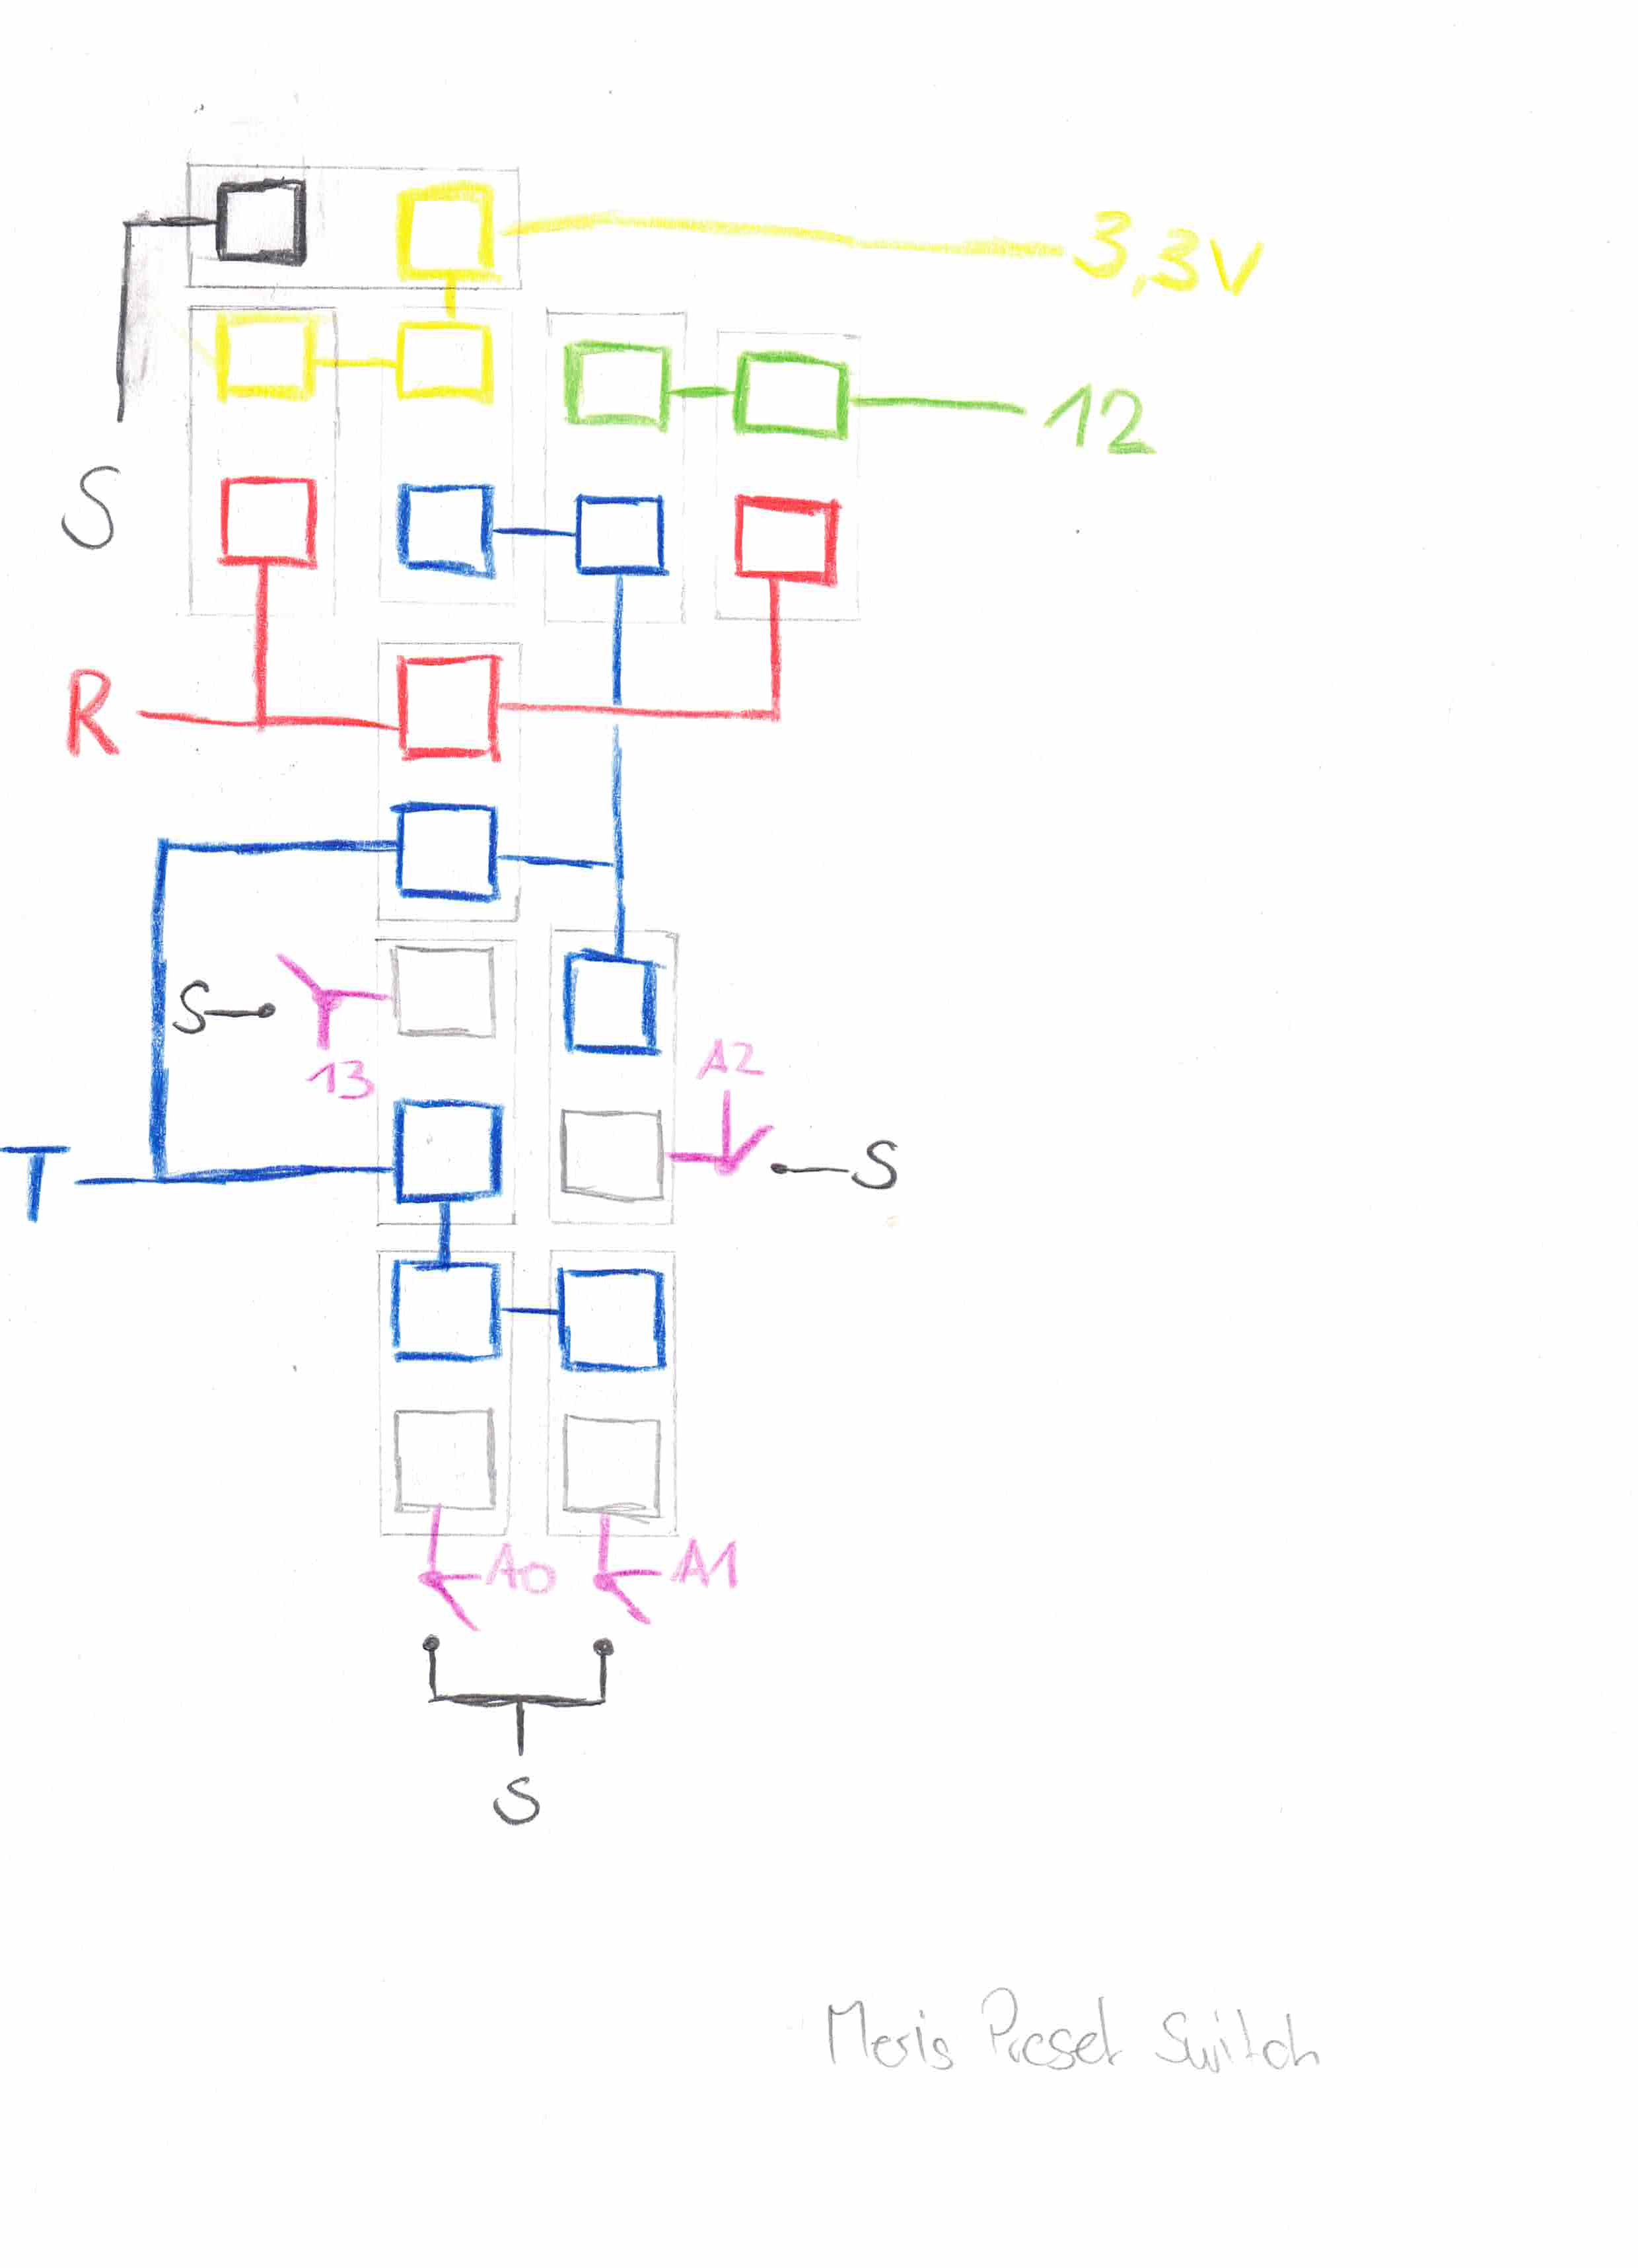 3,3V
12
S
R
S
13
A2
T
S
A0
A1
S
Meris Preset Switch